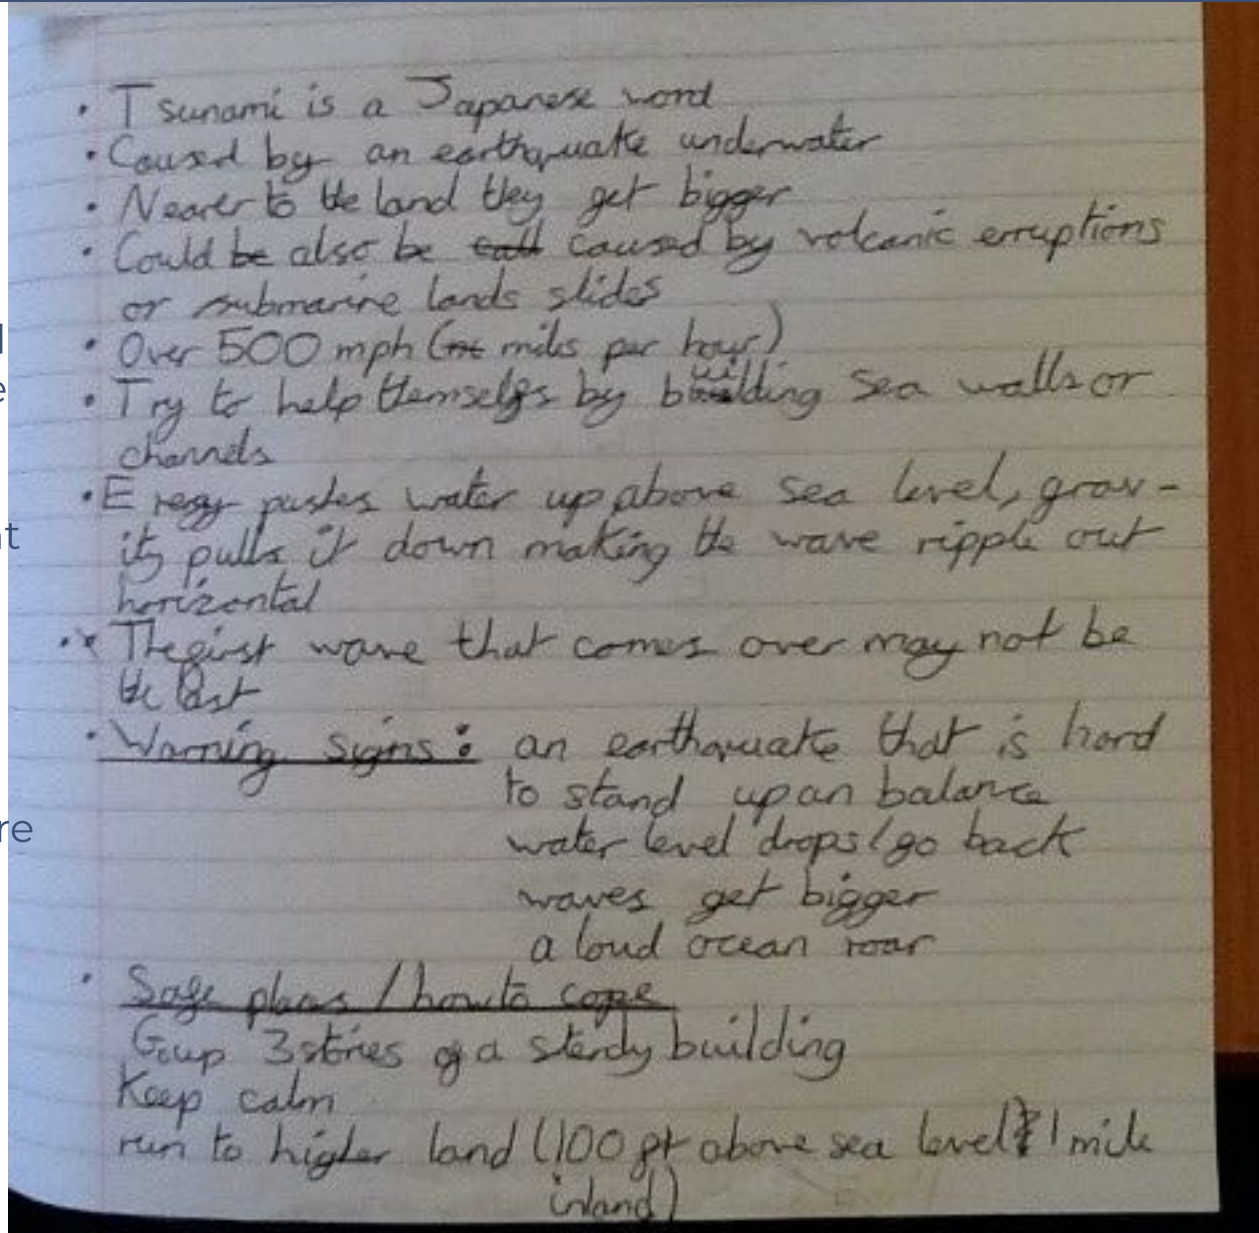 • Tsunami is a Japanese word
• Caused by an earthquake underwater
• Nearer to the land they get bigger
• Could be also be call caused by volcanic erruptions
or submarine lands slides
• Over 500 mph (miles per hour)
• Try to help themselfs by building sea walls or
channels
• Eregy pushes water up above sea level, grav-
ity pulls it down making the wave ripple out
horizontal
• The first wave that comes over may not be
the last
• Warning signs: an earthquake that is hard
to stand up an balance
water level drops/go back
waves get bigger
a loud ocean roar
• Safe places / how to cope
Go up 3 stories of a sterdy building
Keep calm
run to higher land (100 ft above sea level 1 mile
inland)